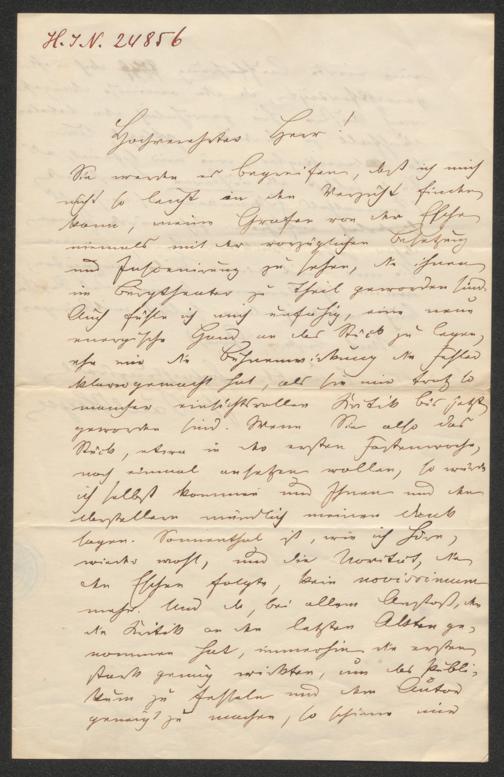 H.I.N. 24856
Hochverehrter Herr!
Sie werden es begreifen, daß ich mich
nicht so leicht in den Verzicht finden
kann, meine Grafen von der Esche
niemals mit der vorzüglichen Besetzung
und Inscenirung zu sehen, die ihnen
im Burgtheater zu Theil geworden sind.
Auch fühle ich mich unfähig, eine neue
energische Hand an das Stück zu legen,
ehe mir die Bühnenwirkung die Fehler
klarer gemacht hat, als sie mir trotz so
mancher einsichtsvollen Kritik bis jetzt
geworden sind. Wenn Sie also das
Stück, etwa in der ersten Fastenwoche,
noch einmal ansetzen wollen, so würde
ich selbst kommen und Ihnen und den
Darstellern mündlich meinen Dank
sagen. Sonnenthal ist, wie ich höre,
wieder wohl, und die Novität, die
den Eschen folgte, kein novissimum
mehr. Und da, bei allem Anstoß, den
die Kritik an den letzten Akten ge-
nommen hat, immerhin die ersten
stark genug wirkten, um das Publi-
kum zu fesseln und dem Autor
geneigt zu machen, so schiene mir